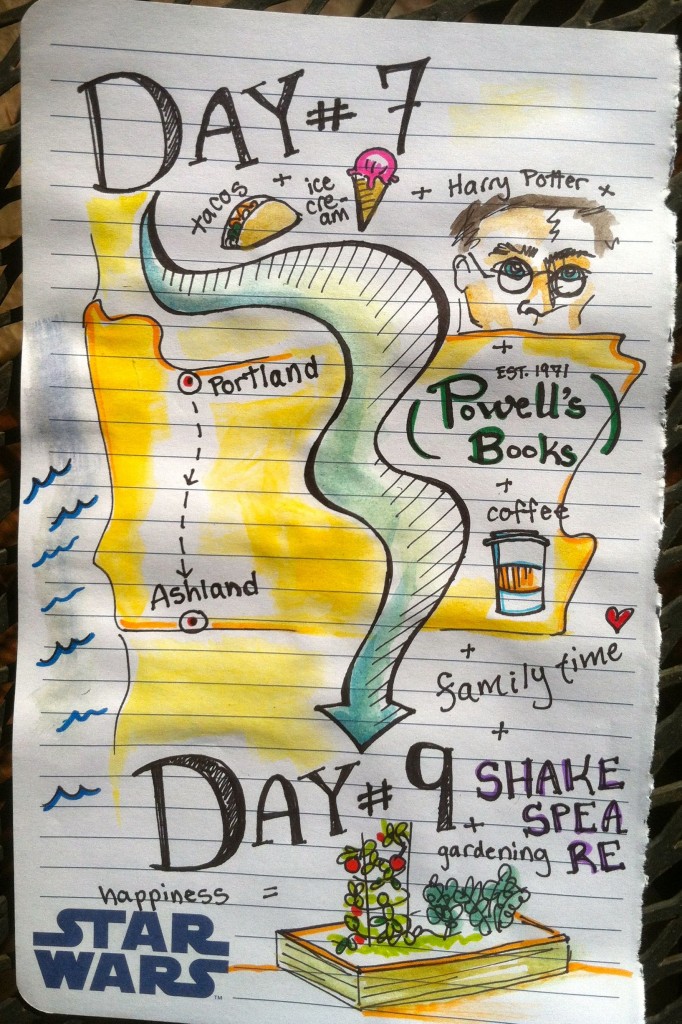 DAY # 7
tacos + ice
cre-
am + Harry Potter +
Portland
+
EST. 1971
(Powell's
Books)
+
coffee
Ashland
+
family time
+
DAY # 9
SHAKE
SPEA
RE
+
gardening
happiness =
STAR
WARS™